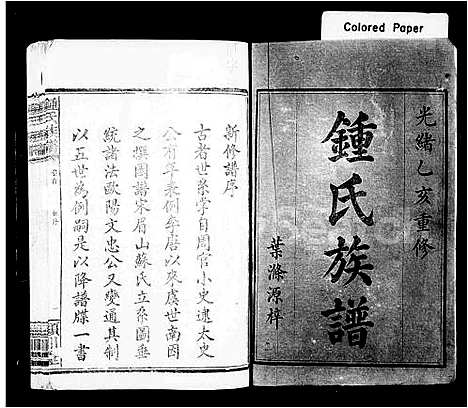 Colored Paper
光緒乙亥重修
鍾氏族譜
葉滌源梓
新修譜序
古者世系學自周官小史逮太史
公有年表例牟唐以來虞世南因
之撰圖譜宋眉山蘇氏立系圖垂
統諸法歐陽文忠公又變通其制
以五世為例嗣是以降譜牒一書